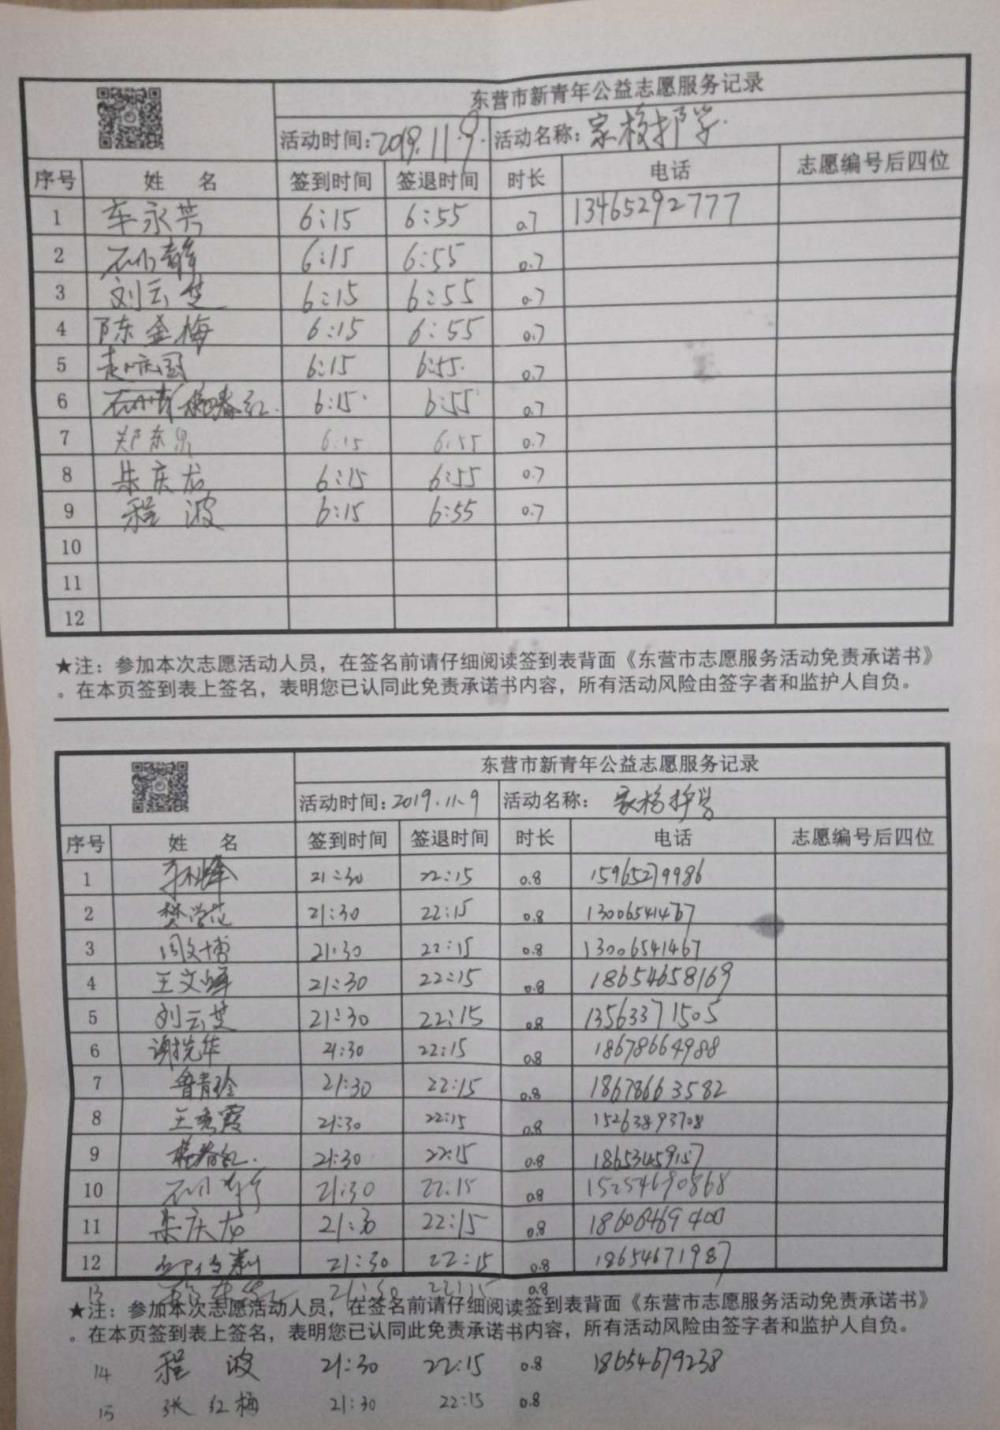 东营市新青年公益志愿服务记录
活动时间:2019.11.9. 活动名称:家校护学.
序号 姓 名 签到时间 签退时间 时长 电话 志愿编号后四位
1 车永芳 6:15 6:55 0.7 13465292777
2 6:15 6:55 0.7
3 刘云芝 6:15 6:55 0.7
4 陈金梅 6:15 6:55 0.7
5 6:15 6:55. 0.7
6 6:15 6:55 0.7
7 郑东 6:15 6:55 0.7
8 朱庆龙 6:15 6:55 0.7
9 程 波 6:15 6:55 0.7
10
11
12
★注:参加本次志愿活动人员,在签名前请仔细阅读签到表背面《东营市志愿服务活动免责承诺书》
。在本页签到表上签名,表明您已认同此免责承诺书内容,所有活动风险由签字者和监护人自负。
东营市新青年公益志愿服务记录
活动时间:2019.11.9 活动名称: 家校护学
序号 姓 名 签到时间 签退时间 时长 电话 志愿编号后四位
1 21:30 22:15 0.8 15965279986
2 樊学花 21:30 22:15 0.8 13006541467
3 周文博 21:30 22:15 0.8 13006541467
4 王文 21:30 22:15 0.8 18654658169
5 刘云芝 21:30 22:15 0.8 13563371505
6 谢 华 21:30 22:15 0.8 18678664988
7 鲁青玲 21:30 22:15 0.8 18678663582
8 王秀霞 21:30 22:15 0.8 15263893708
9 21:30 22:15 0.8 18653459157
10 21:30 22:15 0.8 15254690868
11 朱庆龙 21:30 22:15 0.8 18606469400
12 21:30 22:15 0.8 18654671987
13 21:30 22:15 0.8
★注:参加本次志愿活动人员,在签名前请仔细阅读签到表背面《东营市志愿服务活动免责承诺书》
。在本页签到表上签名,表明您已认同此免责承诺书内容,所有活动风险由签字者和监护人自负。
14 程 波 21:30 22:15 0.8 18654679238
15 张 红梅 21:30 22:15 0.8